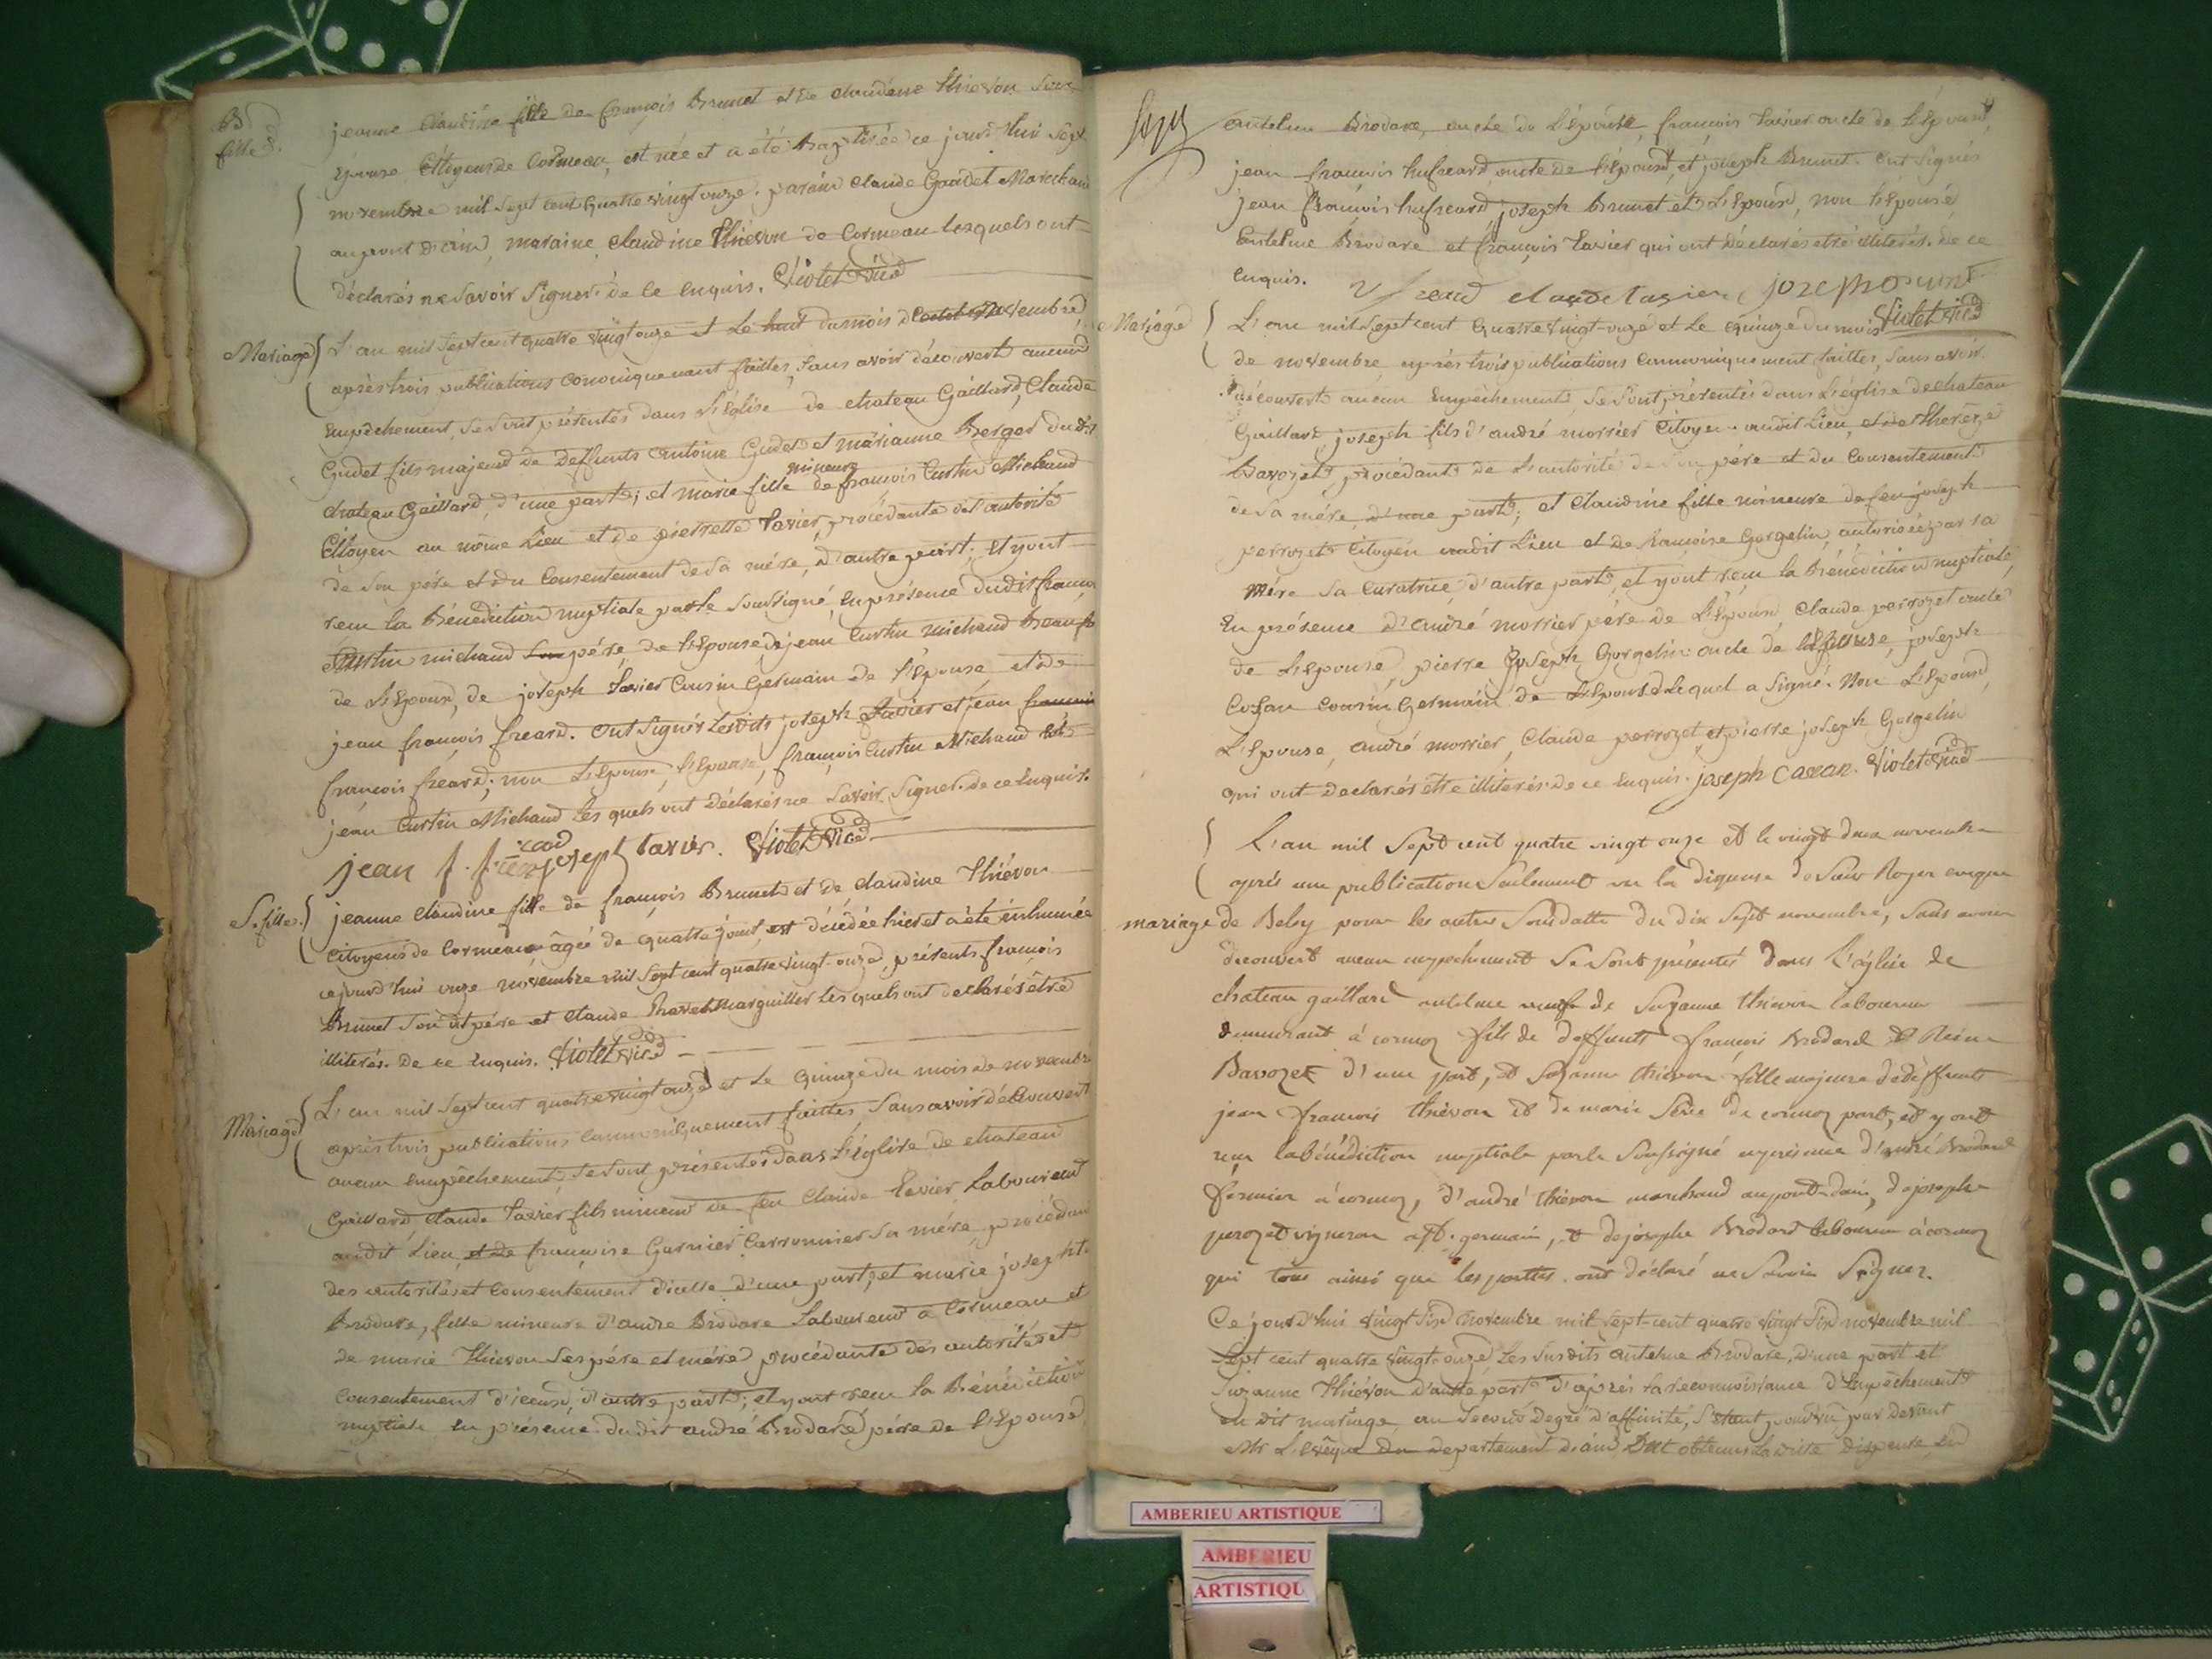 B
fille 8.
jeanne Claudine fille de françois Brunet et de claudine thievon son
épouse Citoyens de Cormeau, est née et a été baptisée ce jourd'hui sept
novembre mil sept cent quatre vingt onze. parain claude Gaudet Marchand
au pont d'ain, maraine claudine thievon de Cormeau lesquels ont
déclarés ne savoir signer. de ce enquis. Violet vic
Mariage
L'an mil sept cent quatre vingt onze et le huit du mois de novembre
après trois publications canoniquement faittes, sans avoir découvert aucun
empêchement, se sont présentés dans l'église de chateau Gaillard, Claude
Gudet fils majeur de deffunts antoine Gudet et marianne Berger dudit
chateau Gaillard, d'une part; et marie fille mineure de françois Curtin Michaud
Citoyen au même Lieu et de pierrette tavier, procédante de l'autorité
de son père et du Consentement de sa mère, d'autre part; et y ont
reçu la Bénédiction nuptiale par le soussigné, en présence dudit françois
Curtin michaud père de l'Epouse, de jean Curtin michaud
de l'Epoux, de joseph tavier Cousin Germain de l'Epouse, et de
jean françois freard. ont signés lesdits joseph tavier et jean
françois freard; non l'Epoux, l'Epouse, françois Curtin Michaud et
jean Curtin Michaud les quels ont déclarés ne savoir signer. de ce enquis.
jean f. joseph tavier. Violet vic
S. fille
jeanne claudine fille de françois Brunet et de claudine thiévon
citoyens de Cormeau âgée de quatre jours, est décédée hier et a été inhumée
cejourd'hui onze novembre mil sept cent quatre vingt-onze, présents françois
Brunet son dit père et claude marguillier les quels ont declarés être
illiterés. de ce enquis. Violet vic
Mariage
L'an mil sept cent quatre vingt onze et le quinze du mois de novembre
après trois publications canoniquement faittes, sans avoir découvert
aucun empêchement, se sont présentés dans l'église de chateau
Gaillard, claude tavier fils mineur de feu Claude tavier Laboureur
audit Lieu, et de françoise Garnier sa mére, procédant
des autorité et Consentement d'icelle d'une part; et marie josephte
Brodare, fille mineure d'andre Brodare Laboureur a Cormeau et
de marie thievon ses père et mère procédante des autorités et
Consentement d'iceux, d'autre part; et y ont reçu la Bénédiction
nuptiale en présence dudit andré Brodare père de l'Epouse,
antelme Brodare, oncle de l'épouse, françois tavier oncle de l'époux,
jean françois hufreard oncle de l'époux, et joseph Brunet. ont signés
jean françois hufreard, joseph Brunet et l'Epoux, non l'Epouse,
antelme Brodare et françois tavier qui ont déclarés etre illiterés. de ce
enquis. claude tavier
Violet vic
Mariage
L'an mil sept cent quatre vingt-onze et le quinze du mois
de novembre, après trois publications canoniquement faittes, sans avoir
découvert aucun empêchement, se sont présentés dans l'église de chateau
Gaillard, joseph fils d'andré morrier Citoyen audit Lieu, et de thereze
Bavozet, procédant de l'autorité de son père et du Consentement
de sa mére, d'une part; et claudine fille mineure de feu joseph
perrozet Citoyen audit Lieu et de françoise Gorgelin, autorisée par sa
mére sa curatrice, d'autre part, et y ont reçu la Bénédiction nuptiale,
en présence d'andré morrier père de l'Epoux, claude perrozet oncle
de l'Epouse, pierre joseph Gorgelin oncle de l'Epouse, joseph
Cozan cousin Germain de l'Epoux lequel a signé. Non l'Epoux,
l'Epouse, andré morrier, Claude perrozet, et pierre joseph Gorgelin
qui ont declarés etre illiterés. de ce enquis. joseph Violet vic
mariage
L'an mil sept cent quatre vingt onze et le vingt deux novembre
après une publication seulement vu la dispense de Royer eveque
de Beley pour les autres sous datte du dix sept novembre, sans avoir
decouvert aucun empechement se sont présentés dans l'église de
chateau gaillard antelme veuf de Suzanne thievon laboureur
demeurant à cormoz fils de deffunts françois Brodard et Reine
Bavozet d'une part, et Suzanne thievon fille majeure de deffunts
jean francois thievon et de marie de cormoz part, et y ont
reçu la bénédiction nuptiale par le soussigné en présence d'andré Brodard
fermier à cormoz, d'andré thievon marchand au pont-dain, de joseph
perozet vigneron a st. germain, et de joseph Brodard laboureur à cormoz
qui tous ainsi que les parties ont déclaré ne savoir signer.
Ce jourd'hui vingt six novembre mil sept-cent quatre vingt six novembre mil
sept cent quatre vingt-onze, les susdits antelme Brodare, d'une part et
Suzanne thiévon d'autre part d'après la reconnoissance d'empêchement
au dit mariage au second degré d'affinité, s'étant pourvu par devant
Mr L'évêque du departement d'ain, ont obtenus la dite dispense, en
AMBERIEU ARTISTIQUE
AMBERIEU
ARTISTIQU